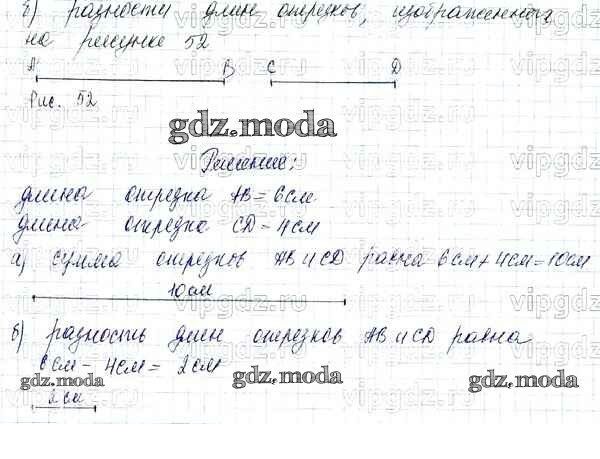 б) разности длин отрезков, изображенных
на рисунке 52
A B C D
Рис. 52
gdz.moda
Решение:
длина отрезка AB = 6см
длина отрезка CD = 4см
а) сумма отрезков AB и CD равна 6см + 4см = 10см
10см
б) разность длин отрезков AB и CD равна
6см - 4см = 2см
gdz.moda gdz.moda gdz.moda
2см